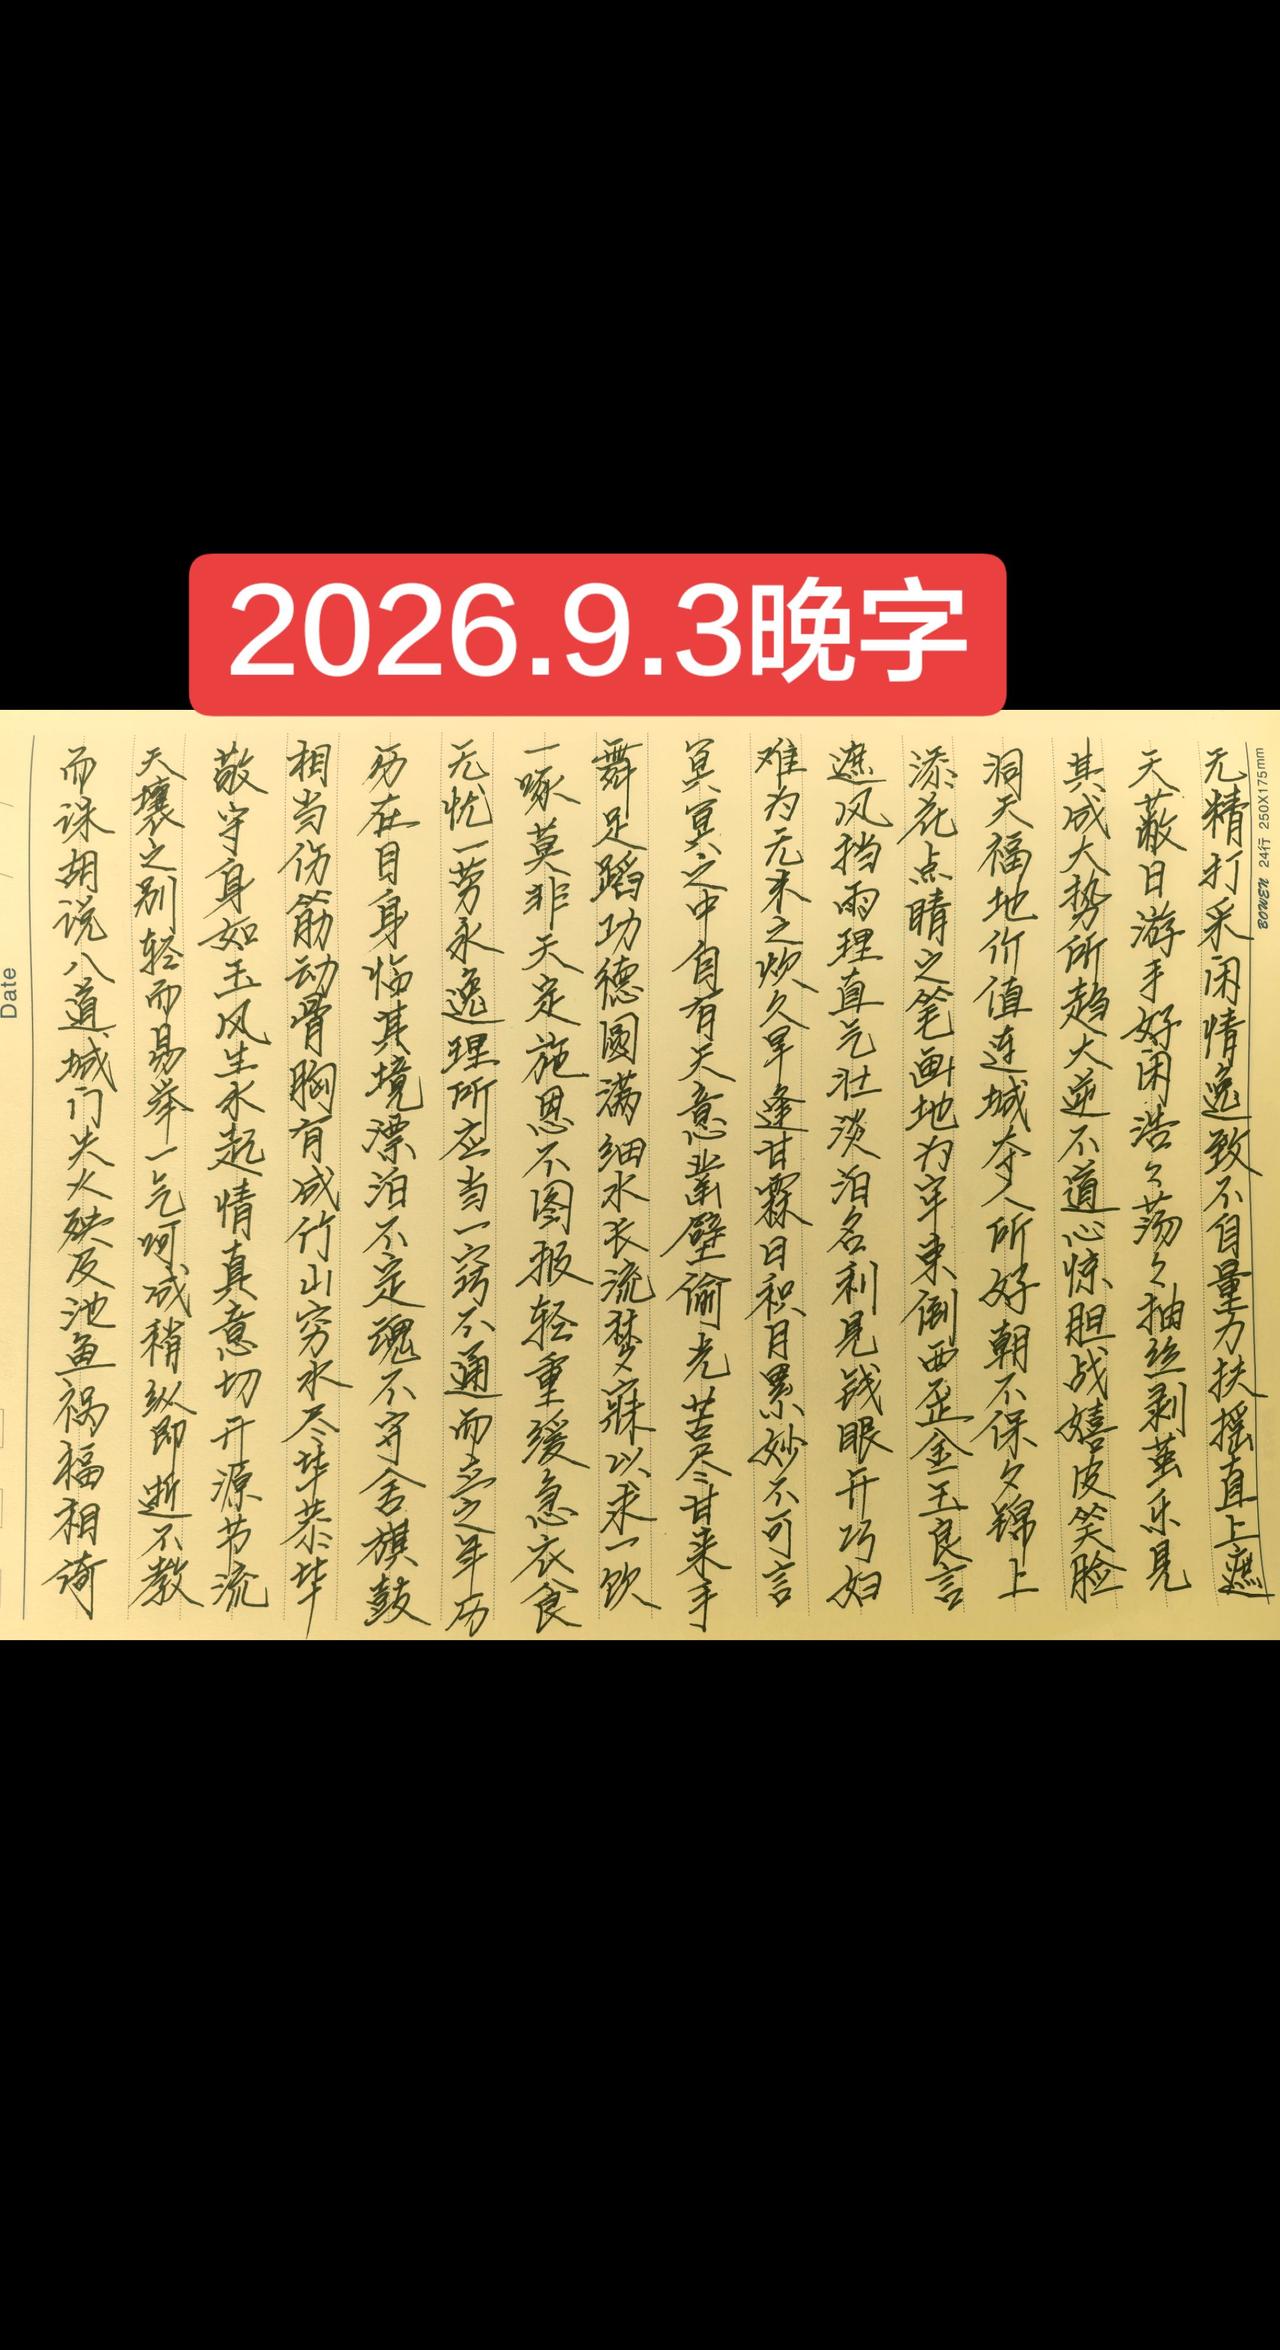 2026.9.3晚字
BOWEN 24行 250X175mm
无精打采闲情逸致不自量力扶摇直上遮
天蔽日游手好闲浩々荡々抽丝剥茧乐见
其成大势所趋大逆不道心惊胆战嬉皮笑脸
洞天福地价值连城夺人所好朝不保夕锦上
添花点睛之笔画地为牢东倒西歪金玉良言
遮风挡雨理直气壮淡泊名利见钱眼开巧妇
难为无米之炊久旱逢甘霖日积月累妙不可言
冥冥之中自有天意凿壁偷光苦尽甘来手
舞足蹈功德圆满细水长流梦寐以求一饮
一啄莫非天定施恩不图报轻重缓急衣食
无忧一劳永逸理所应当一窍不通而立之年历
历在目身临其境漂泊不定魂不守舍旗鼓
相当伤筋动骨胸有成竹山穷水尽毕恭毕
敬守身如玉风生水起情真意切开源节流
天壤之别轻而易举一气呵成稍纵即逝不教
而诛胡说八道城门失火殃及池鱼祸福相倚
Date